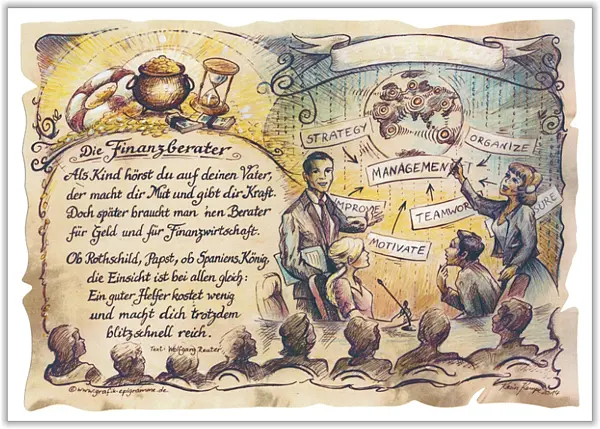 Die Finanzberater
Als Kind hörst du auf deinen Vater,
der macht dir Mut und gibt dir Kraft.
Doch später braucht man 'nen Berater
für Geld und für Finanzwirtschaft.
Ob Rothschild, Papst, ob Spaniens König,
die Einsicht ist bei allen gleich:
Ein guter Helfer kostet wenig
und macht dich trotzdem
blitzschnell reich.
Text: Wolfgang Reuter
©www.grafik-epigramme.de
STRATEGY
ORGANIZE
MANAGEMENT
IMPROVE!
TEAMWORK
MOTIVATE
2014